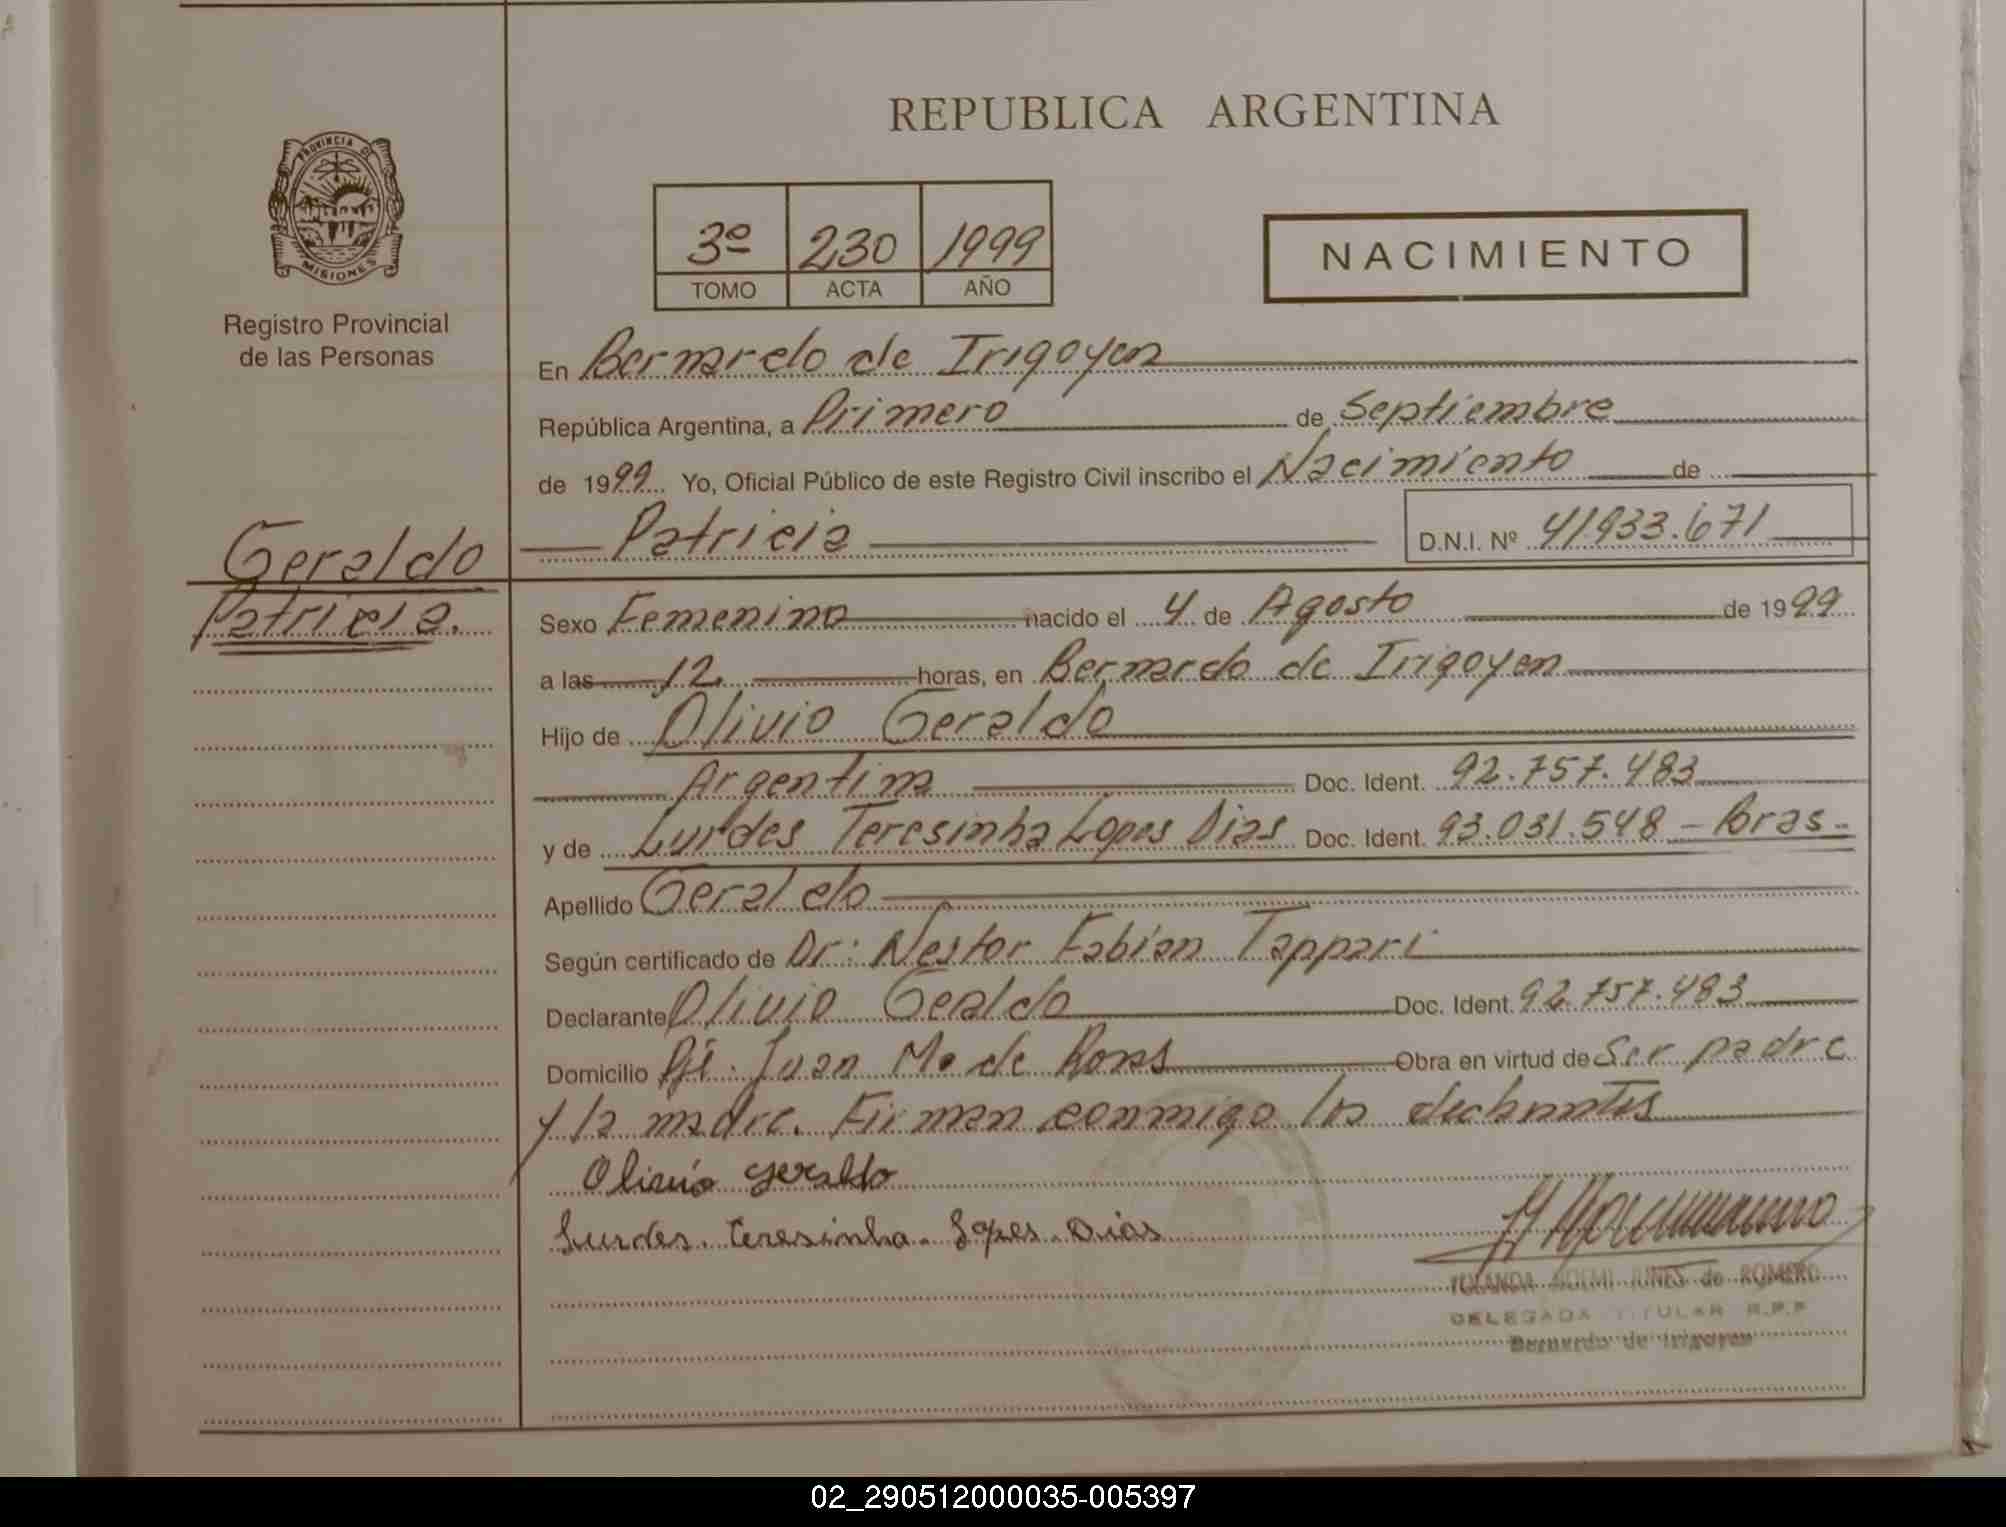 REPUBLICA ARGENTINA
PROVINCIA DE
MISIONES
Registro Provincial
de las Personas
3º 230 1999
TOMO ACTA AÑO
NACIMIENTO
En Bernardo de Irigoyen
República Argentina, a Primero de Septiembre
de 1999 Yo, Oficial Público de este Registro Civil inscribo el Nacimiento de
Patricia D.N.I. Nº 41.933.671
Geraldo
Patricia.
Sexo Femenino nacido el 4 de Agosto de 1999
a las 12 horas, en Bernardo de Irigoyen
Hijo de Olivio Geraldo
Argentina Doc. Ident. 92.757.483
y de Lurdes Teresinha Lopes Dias Doc. Ident. 93.031.548 - Bras-
Apellido Geraldo
Según certificado de Dr: Nestor Fabian Tappari
Declarante Olivio Gealdo Doc. Ident. 92.757.483
Domicilio Pje. Juan M. de Rosas Obra en virtud de Ser padre
y la madre. Firman conmigo los declarantes
Olivio Geraldo
Lurdes. Teresinha. Lopes. Dias
YOLANDA NOEMI JUNES de ROMERO
DELEGADA TITULAR R.P.P
Bernardo de Irigoyen
02_290512000035-005397